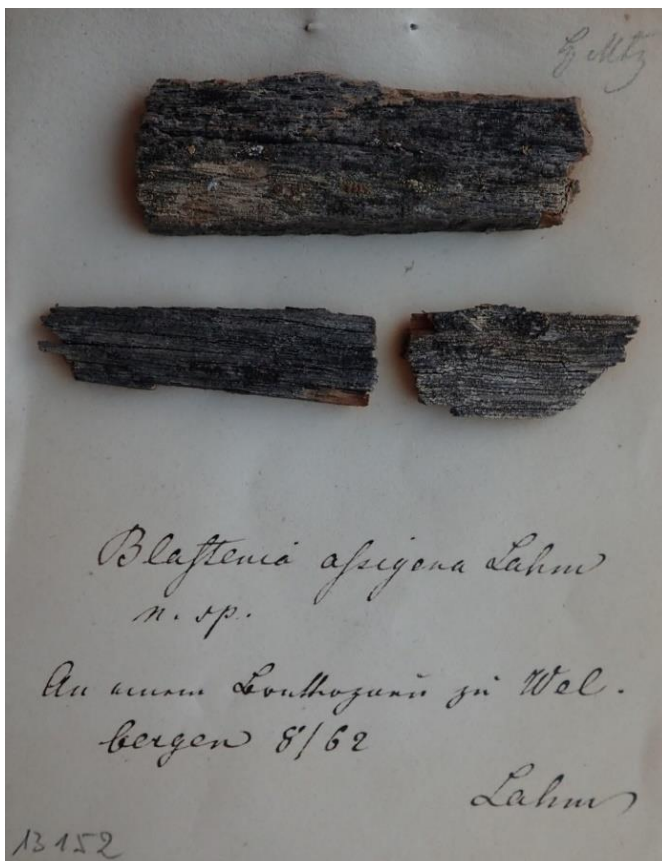 Blastenia assigena Lahm
n. sp.
An einem Bretterzaun zu Wel-
bergen 8/62
Lahm
13152